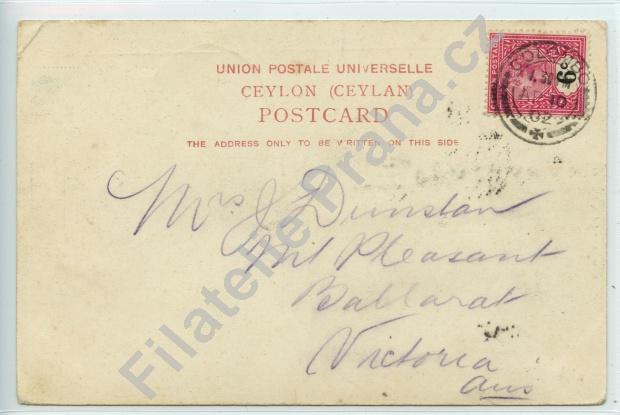 UNION POSTALE UNIVERSELLE
CEYLON (CEYLAN)
POSTCARD
THE ADDRESS ONLY TO BE WRITTEN ON THIS SIDE
POSTAGE
6
COLOMBO
10
02
Mrs J Dunstan
Mt Pleasant
Ballarat
Victoria
Aus
Filatelie Praha.cz